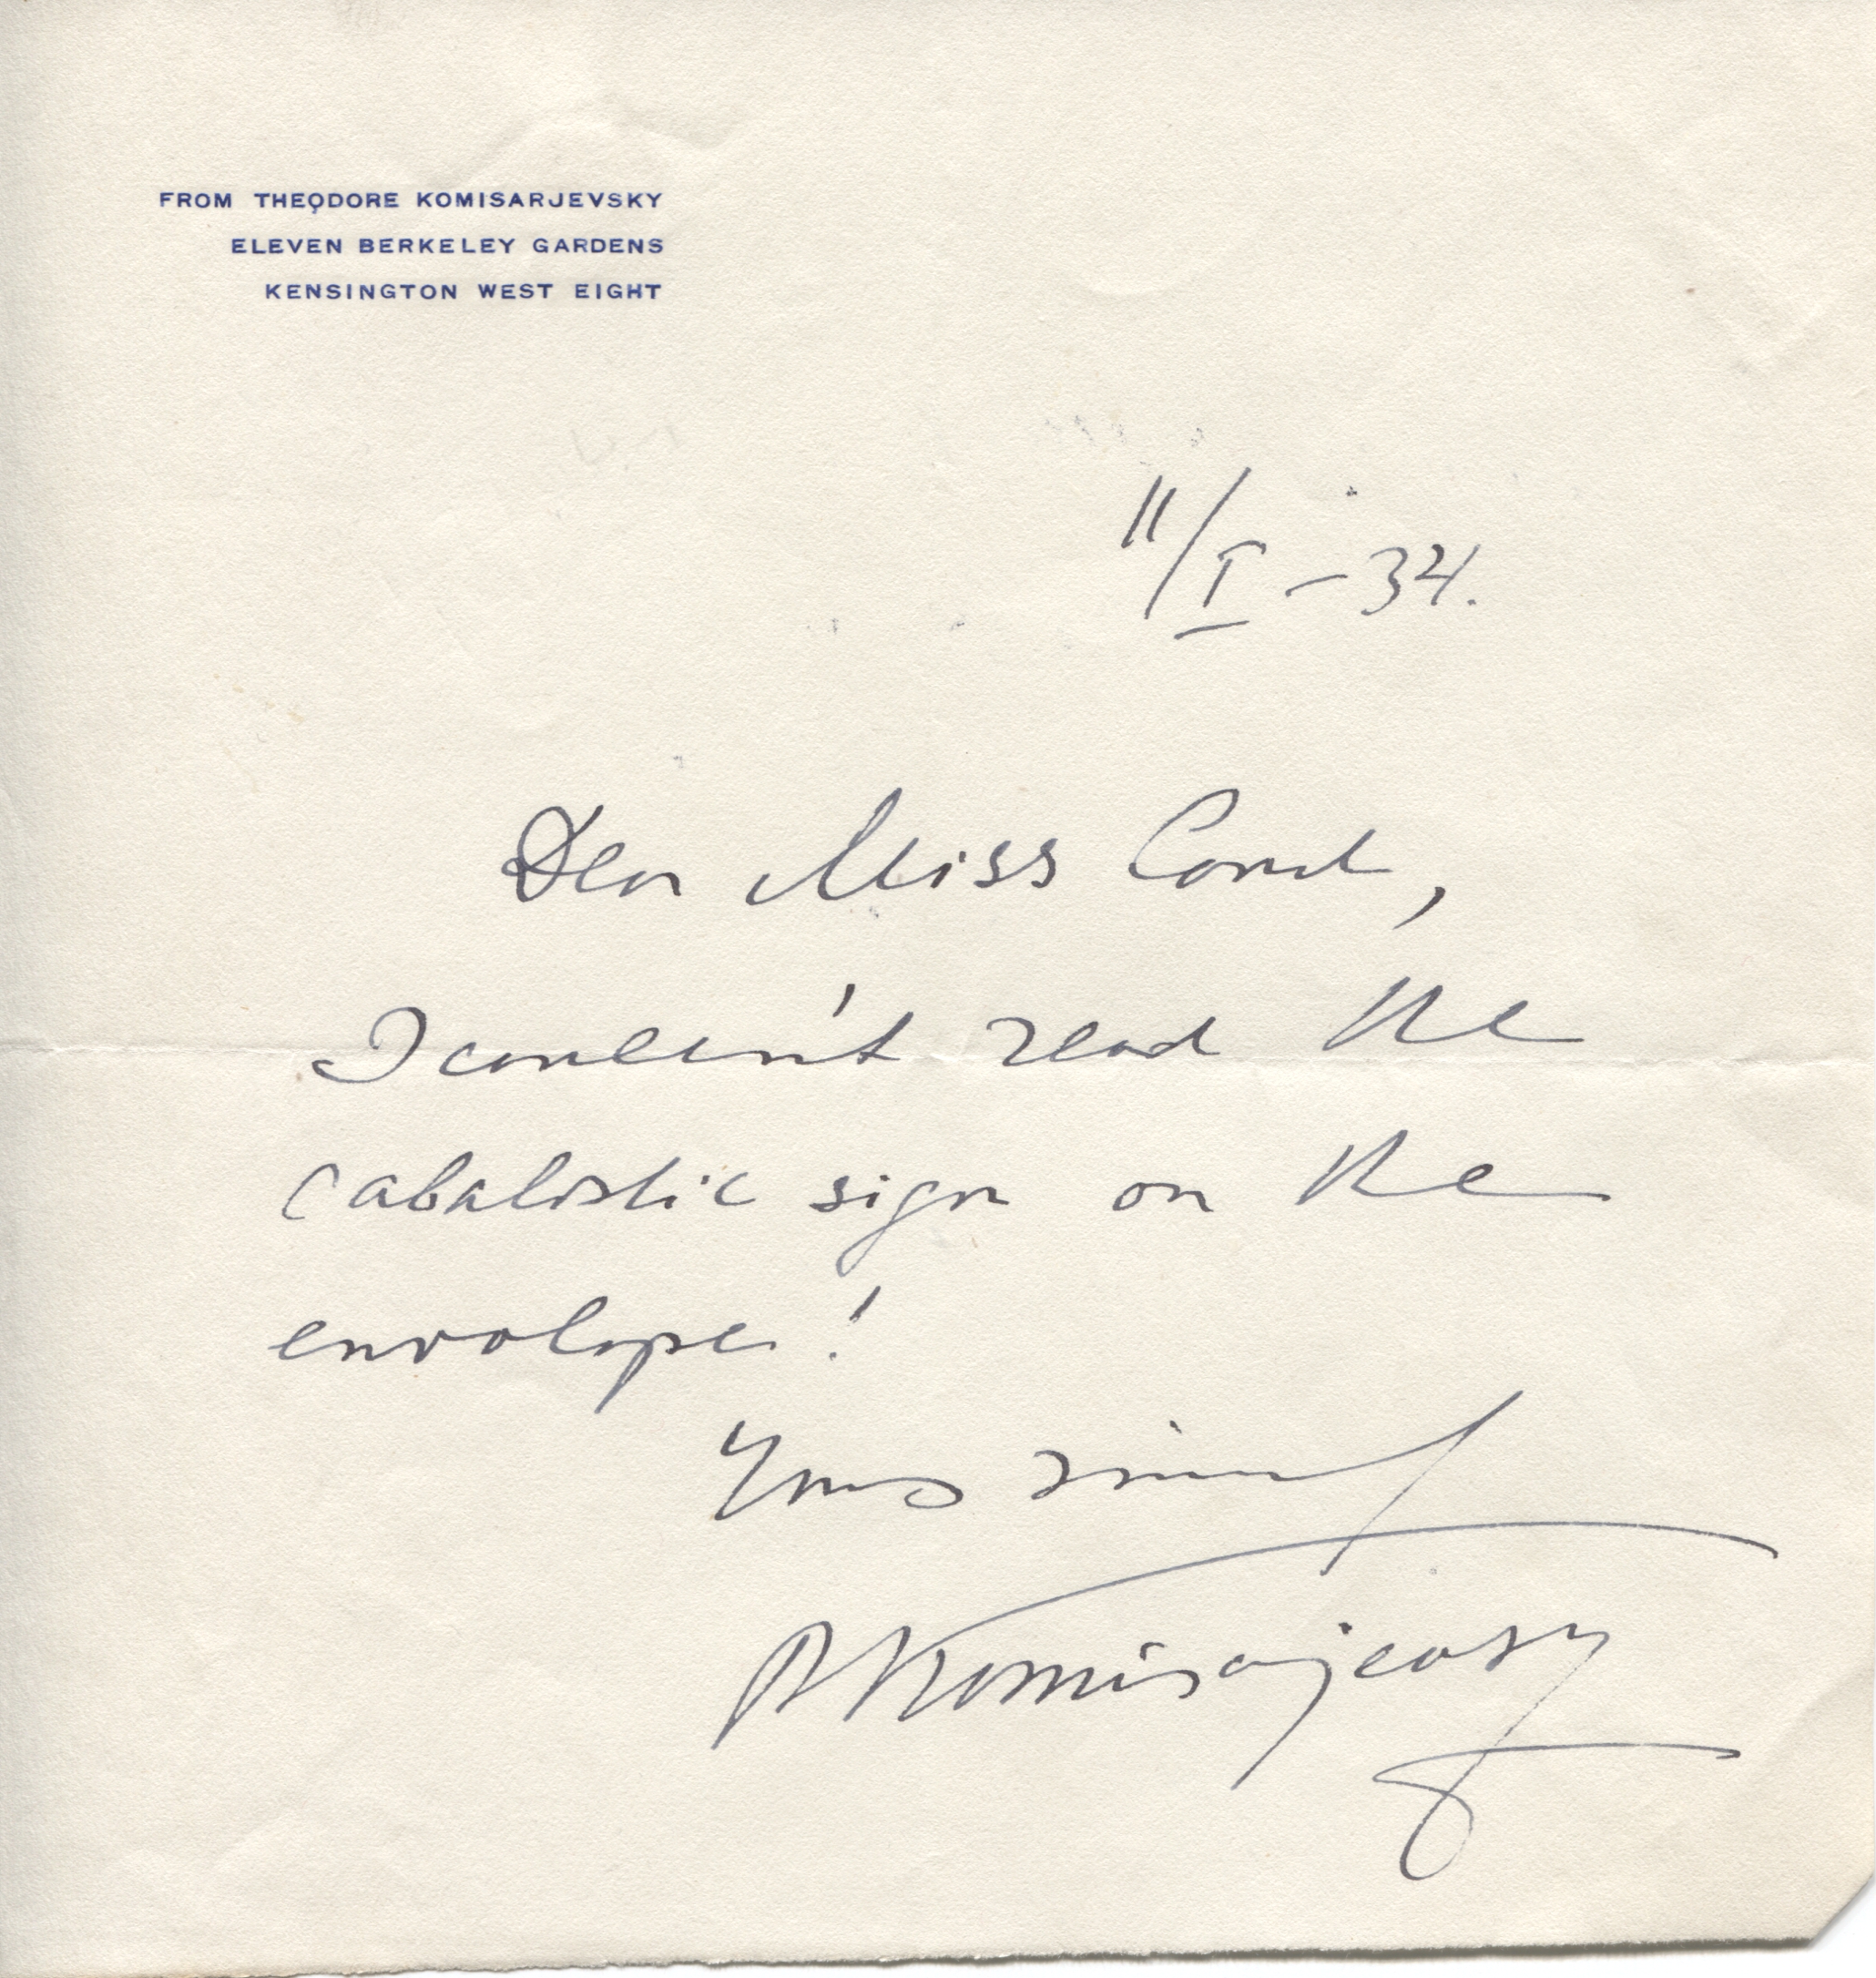 FROM THEODORE KOMISARJEVSKY
ELEVEN BERKELEY GARDENS
KENSINGTON WEST EIGHT
11/I – 34.
Dear Miss
I couldn't read the
cabalistic sign on the
envelope!
Yours sincerely
Komisarjevsky